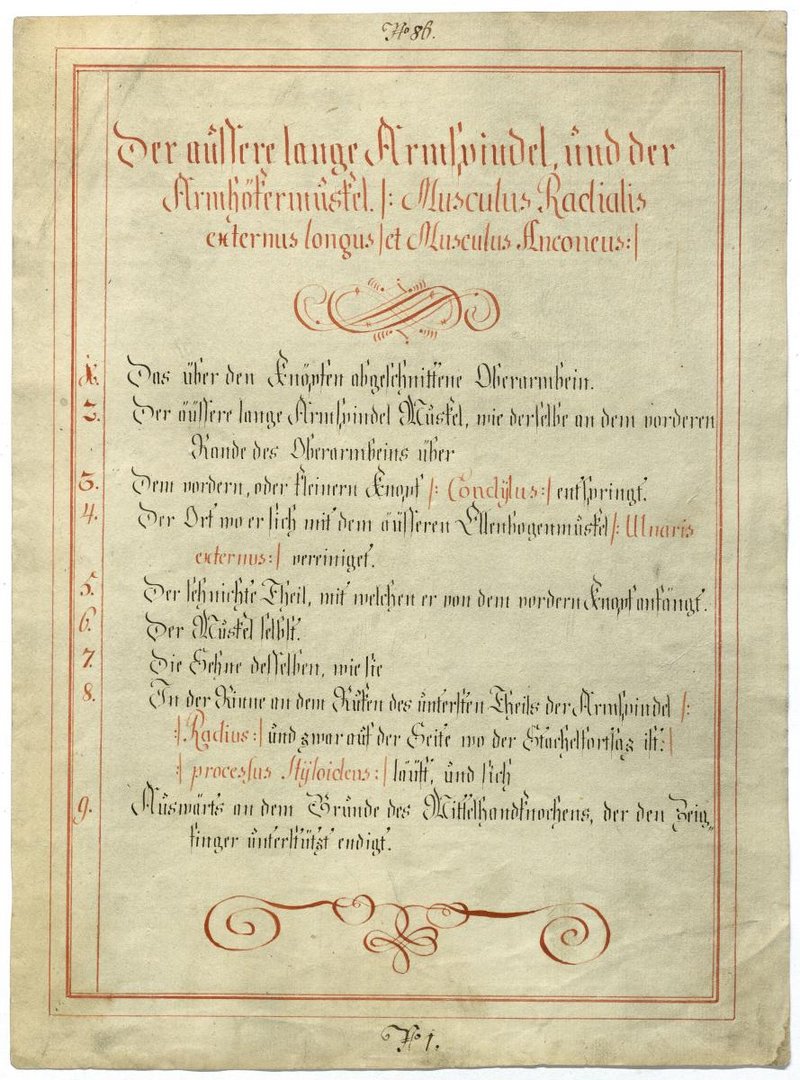 No 86.
Der äußere lange Armspindel, und der
Armhökermuskel. |: Musculus Radialis
externus longus| et Musculus Anconeus:|
1. Das über den Knöpfen abgeschnittene Oberarmbein.
2. Der äußere lange Armspindel Muskel, wie derselbe an dem vorderen
Rande des Oberarmbeins über
3. Dem vordern, oder kleinern Knopf |: Condÿlus:| entspringt.
4. Der Ort wo er sich mit dem äußeren Ellenbogenmuskel |: Ulnaris
externus:| vereiniget.
5. Der sehnichte Theil, mit welchen er von dem vordern Knopf anfängt.
6. Der Muskel selbst.
7. Die Sehne desselben, wie sie
8. In der Rinne an dem Rüken des untersten Theils der Armspindel |:
:| Radius:| und zwar auf der Seite wo der Stachelfortsaz ist:|
:| processus Stÿloideus:| läuft, und sich
9. Auswärts an dem Grunde des Mittelhandknochens, der den Zeig„
finger unterstützt endigt.
No 1.